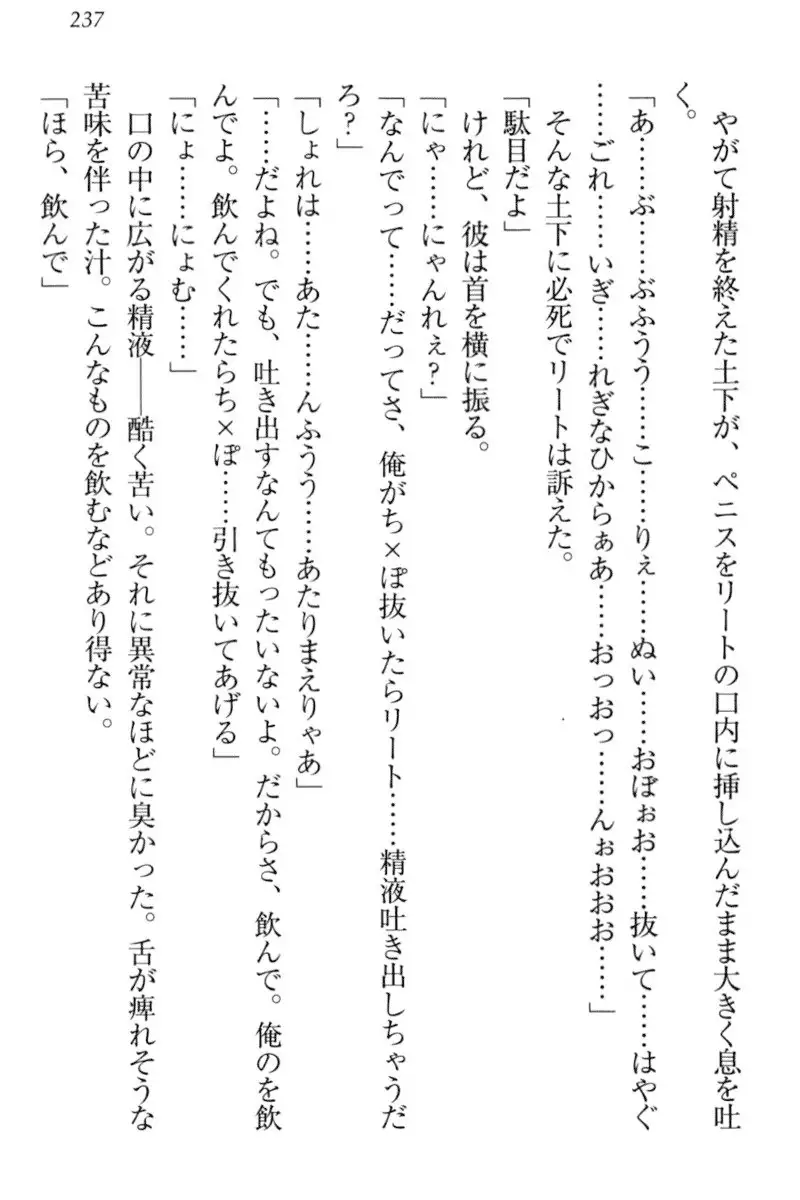 237
やがて射精を終えた土下が、ペニスをリートの口内に挿し込んだまま大きく息を吐
く。
「あ……ぶ……ぶふうう……こ……りぇ……ぬい……おぼぉお……抜いて……はやぐ
……ごれ……いぎ……れぎなひからぁあ……おっおっ……んぉおおお……」
そんな土下に必死でリートは訴えた。
「駄目だよ」
けれど、彼は首を横に振る。
「にゃ……にゃんれぇ？」
「なんでって……だってさ、俺がち×ぽ抜いたらリート……精液吐き出しちゃうだ
ろ？」
「しょれは……あた……んふうう……あたりまえりゃあ」
「……だよね。でも、吐き出すなんてもったいないよ。だからさ、飲んで。俺のを飲
んでよ。飲んでくれたらち×ぽ……引き抜いてあげる」
「にょ……にょむ……」
口の中に広がる精液――酷く苦い。それに異常なほどに臭かった。舌が痺れそうな
苦味を伴った汁。こんなものを飲むなどあり得ない。
「ほら、飲んで」